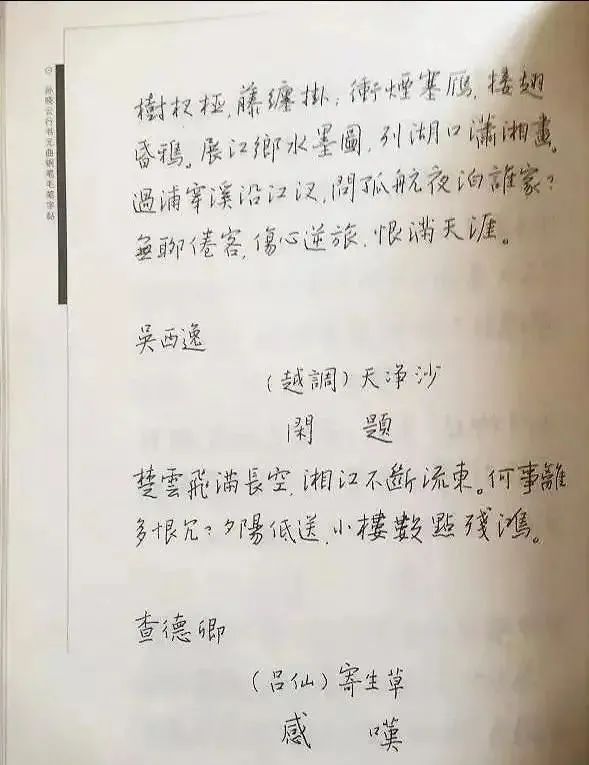 孙晓云行书元曲钢笔毛笔字帖
樹杈椏,藤纏掛;衝煙塞雁,棲翅
昏鴉。展江鄉水墨圖,列湖口瀟湘畫。
過浦穿溪沿江汊,問孤航夜泊誰家?
無聊倦客,傷心逆旅,恨滿天涯。
吳西逸
(越調)天净沙
閑 題
楚雲飛滿長空,湘江不斷流東。何事離
多恨冗?夕陽低送,小樓數點殘鴻。
查德卿
(吕仙)寄生草
感 嘆